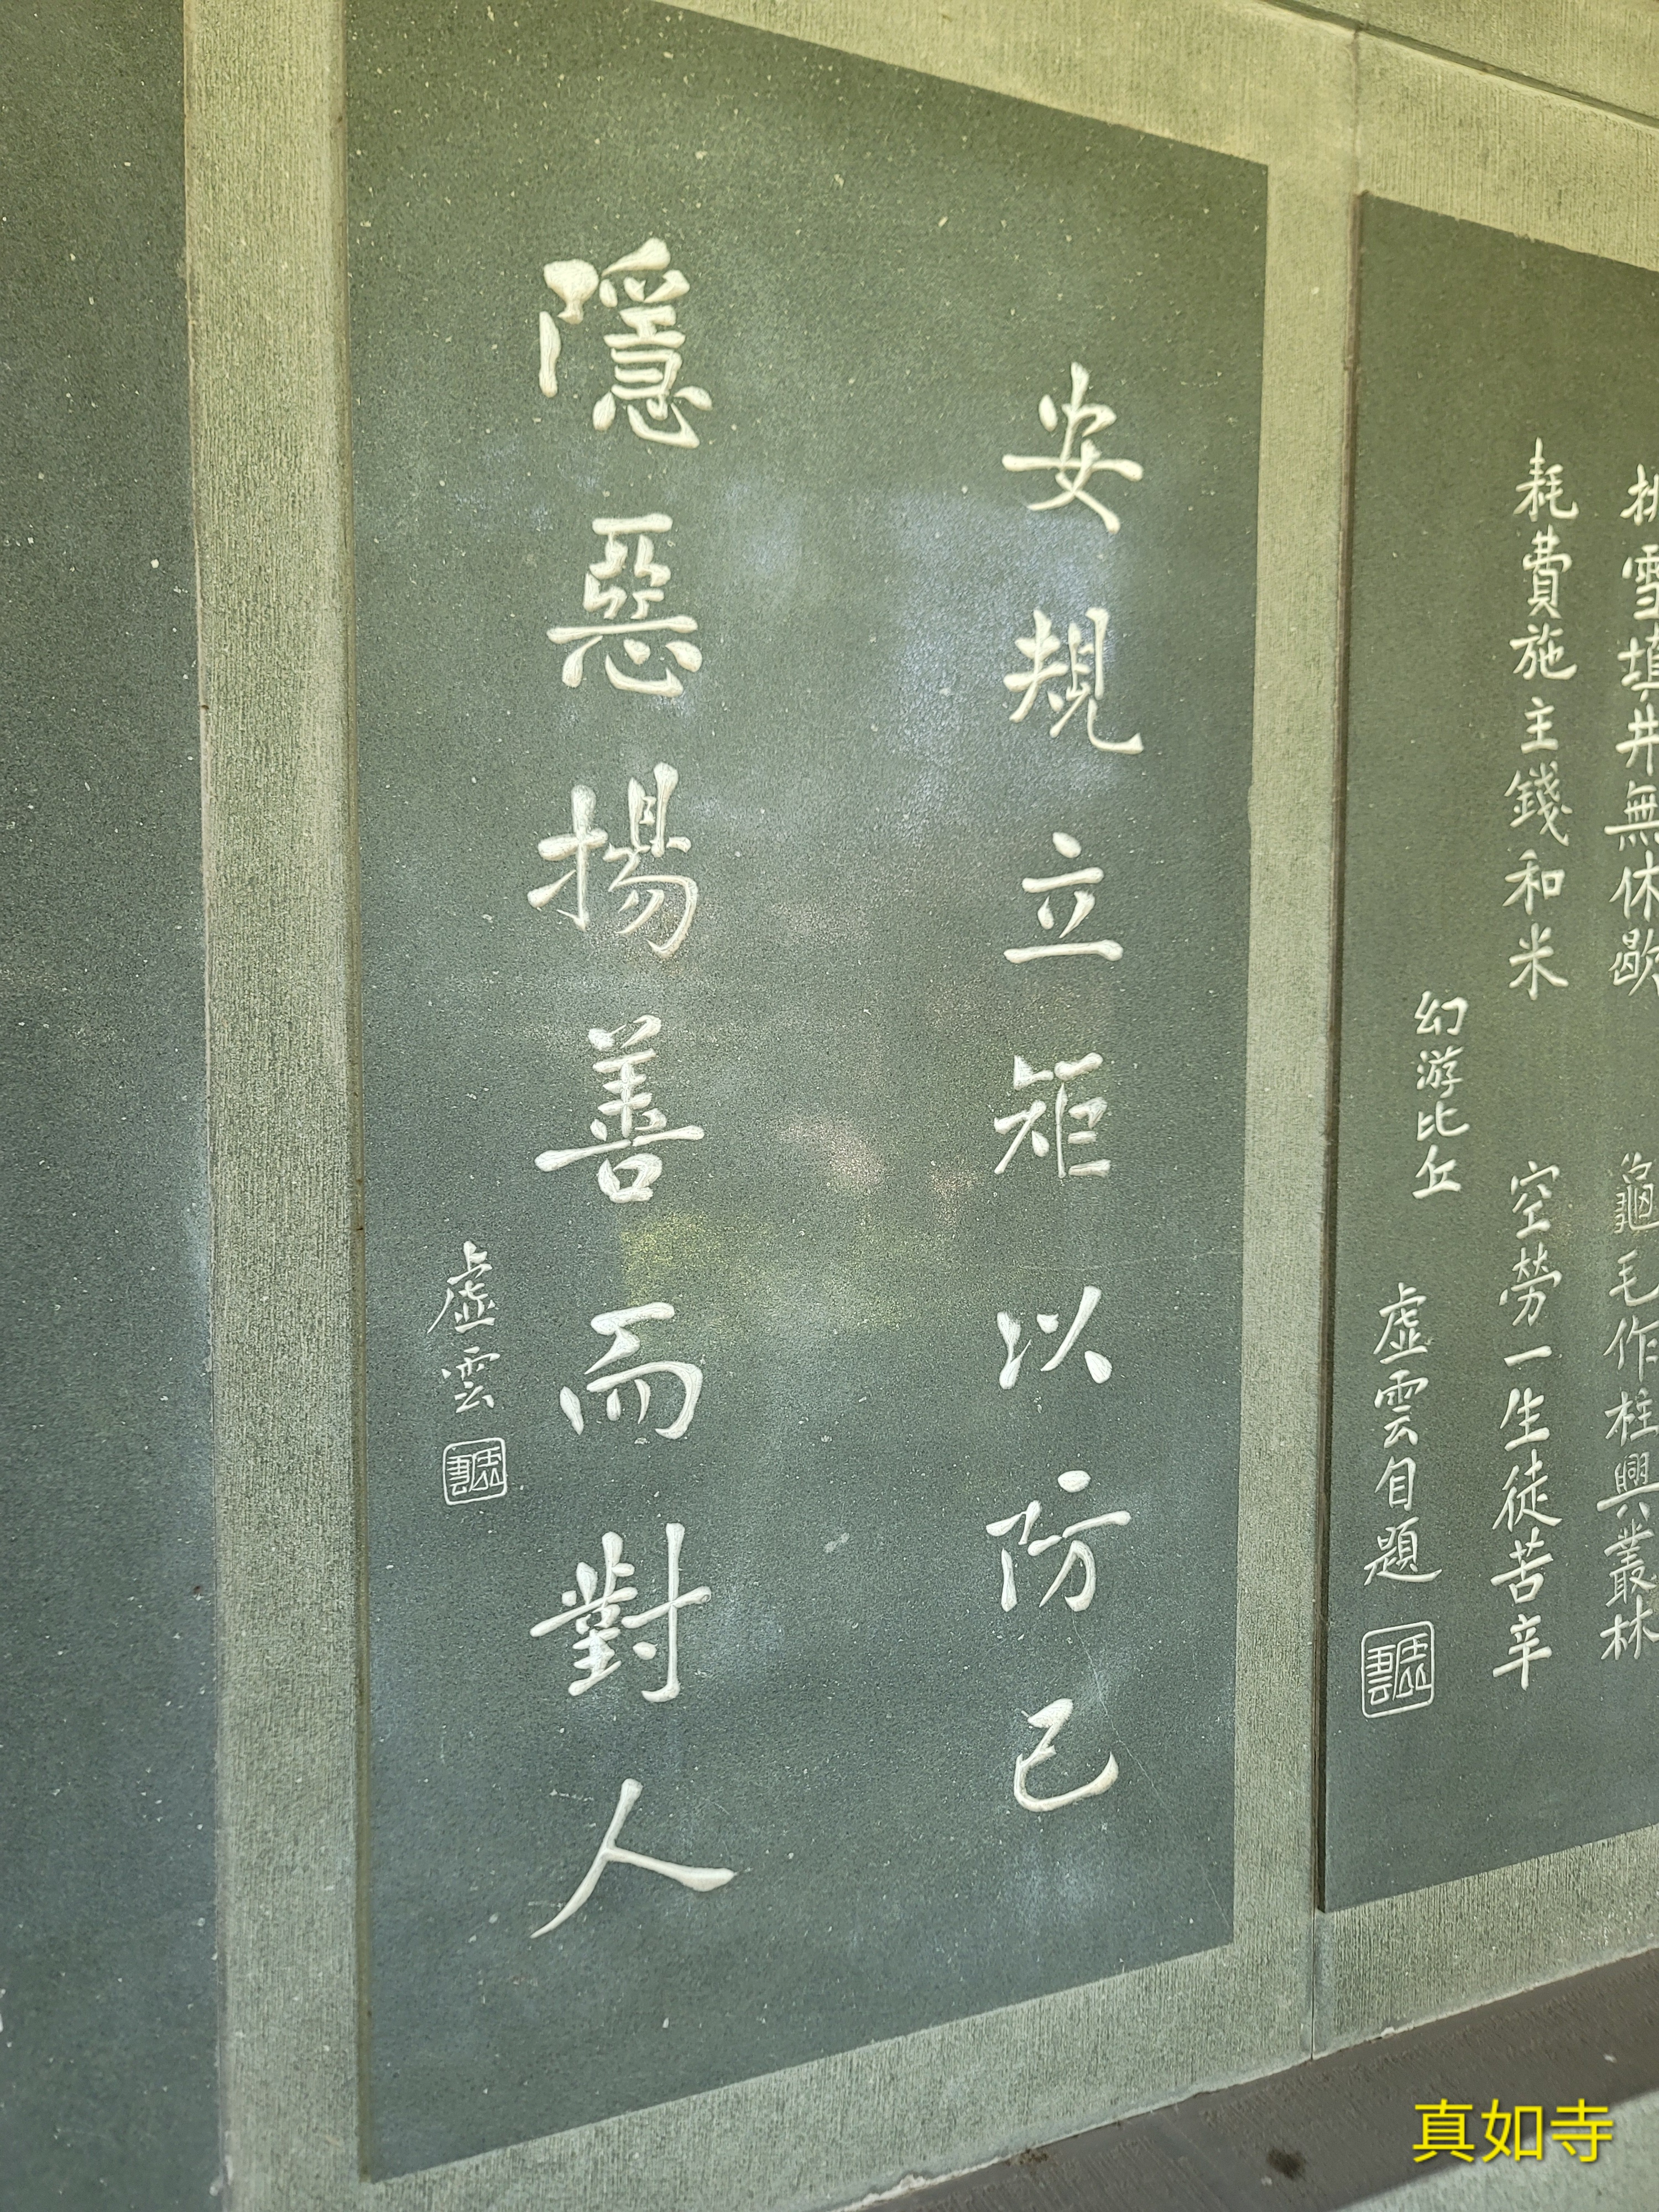 挑雪填井無休歇
龜毛作柱興叢林
耗費施主錢和米
空勞一生徒苦辛
幻游比丘
虛雲自題
安規立矩以防已
隱惡揚善而對人
虛雲
真如寺